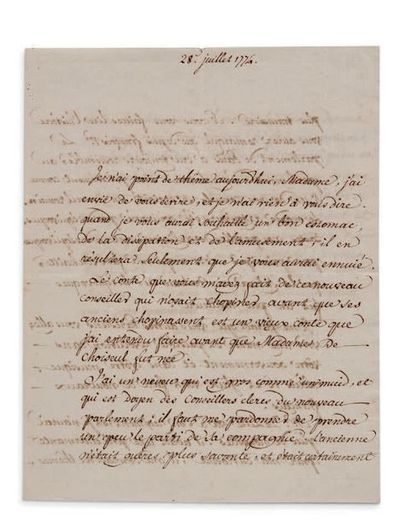 28e. juillet 1774.
Je n'ai point de thême aujourdhui, Madame, j'ai
envie de vous écrire, et je n'ai rien à vous dire.
quand je vous aurai souhaitté un bon estomac,
de la dissipation et de l'amusement, il en
résultera seulement que je vous aurai ennuié.
Le conte que vous m'avez fait de ce nouveau
Conseiller qui n'osait chopiner avant que ses
anciens chopinassent est un vieux conte que
j'ai entendu faire avant que Madame de
Choiseul fut née.
J'ai un neveu qui est gros comme un muid, et
qui est doyen des Conseillers clercs du nouveau
parlement; il faut me pardonner de prendre
un peu le parti de sa compagnie. L'ancienne
n'était guères plus savante, et était certainement